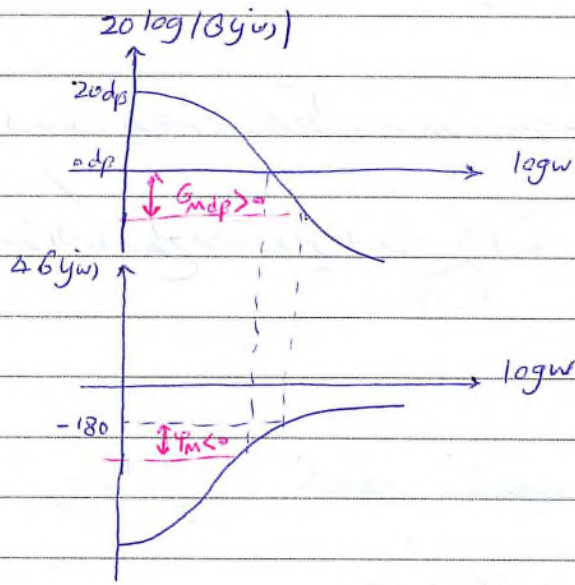 20 log |G(jω)|
20dβ
0dβ
logw
G_Mdβ>0
∡G(jω)
logw
-180
φ_M<0